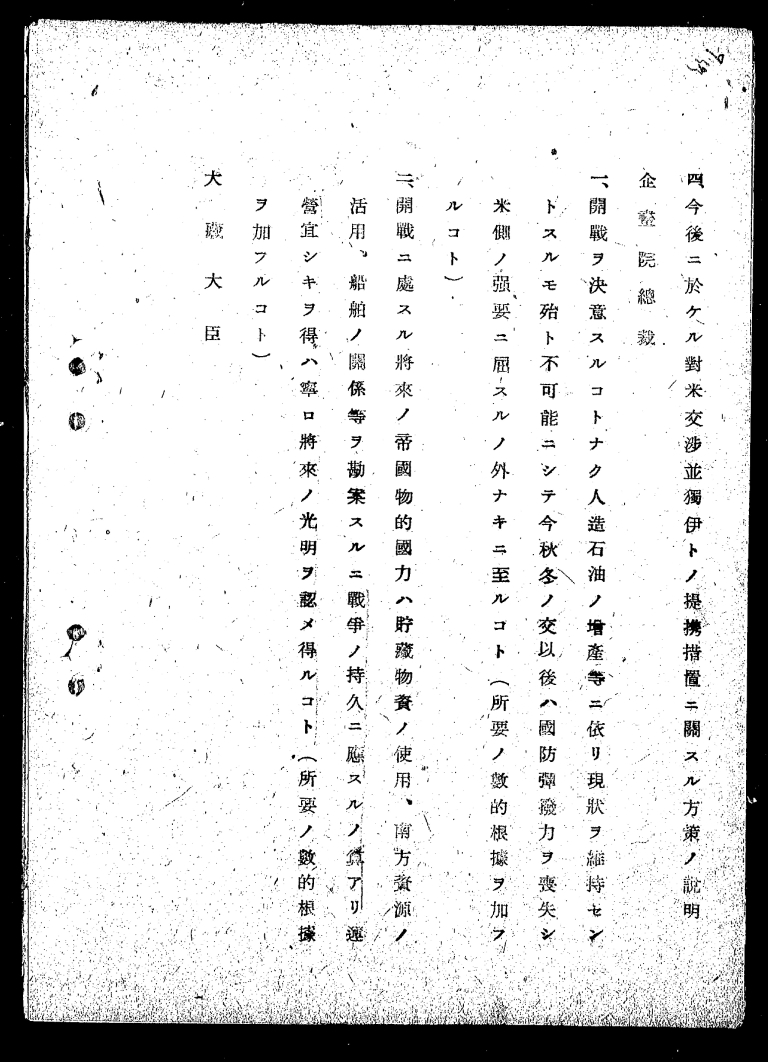 四、今後ニ於ケル對米交渉並獨伊トノ提携措置ニ關スル方策ノ說明
企畫院總裁
一、開戰ヲ決意スルコトナク人造石油ノ增產等ニ依リ現狀ヲ維持セン
トスルモ殆ト不可能ニシテ今秋冬ノ交以後ハ國防彈撥力ヲ喪失シ
米側ノ强要ニ屈スルノ外ナキニ至ルコト（所要ノ數的根據ヲ加フ
ルコト）
二、開戰ニ處スル將來ノ帝國物的國力ハ貯藏物資ノ使用、南方資源ノ
活用、船舶ノ關係等ヲ勘案スルニ戰爭ノ持久ニ應スルノ算アリ運
營宜シキヲ得ハ寧ロ將來ノ光明ヲ認メ得ルコト（所要ノ數的根據
ヲ加フルコト）
大藏大臣